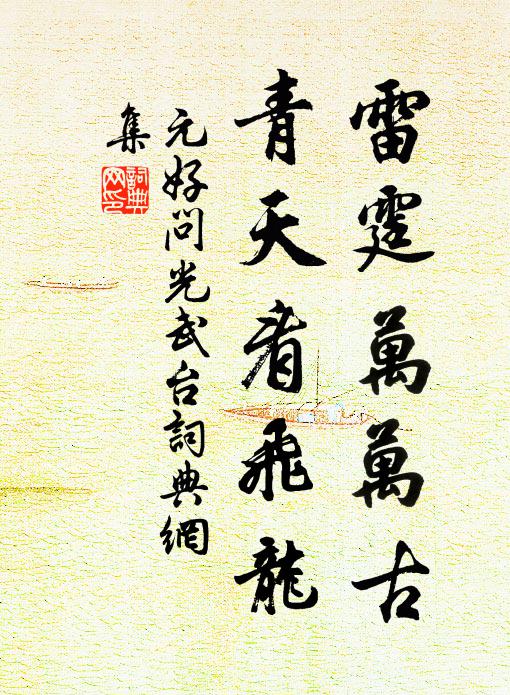 雷霆萬萬古
青天看飛龍
元好問光武台詞典網
集
詞典網印